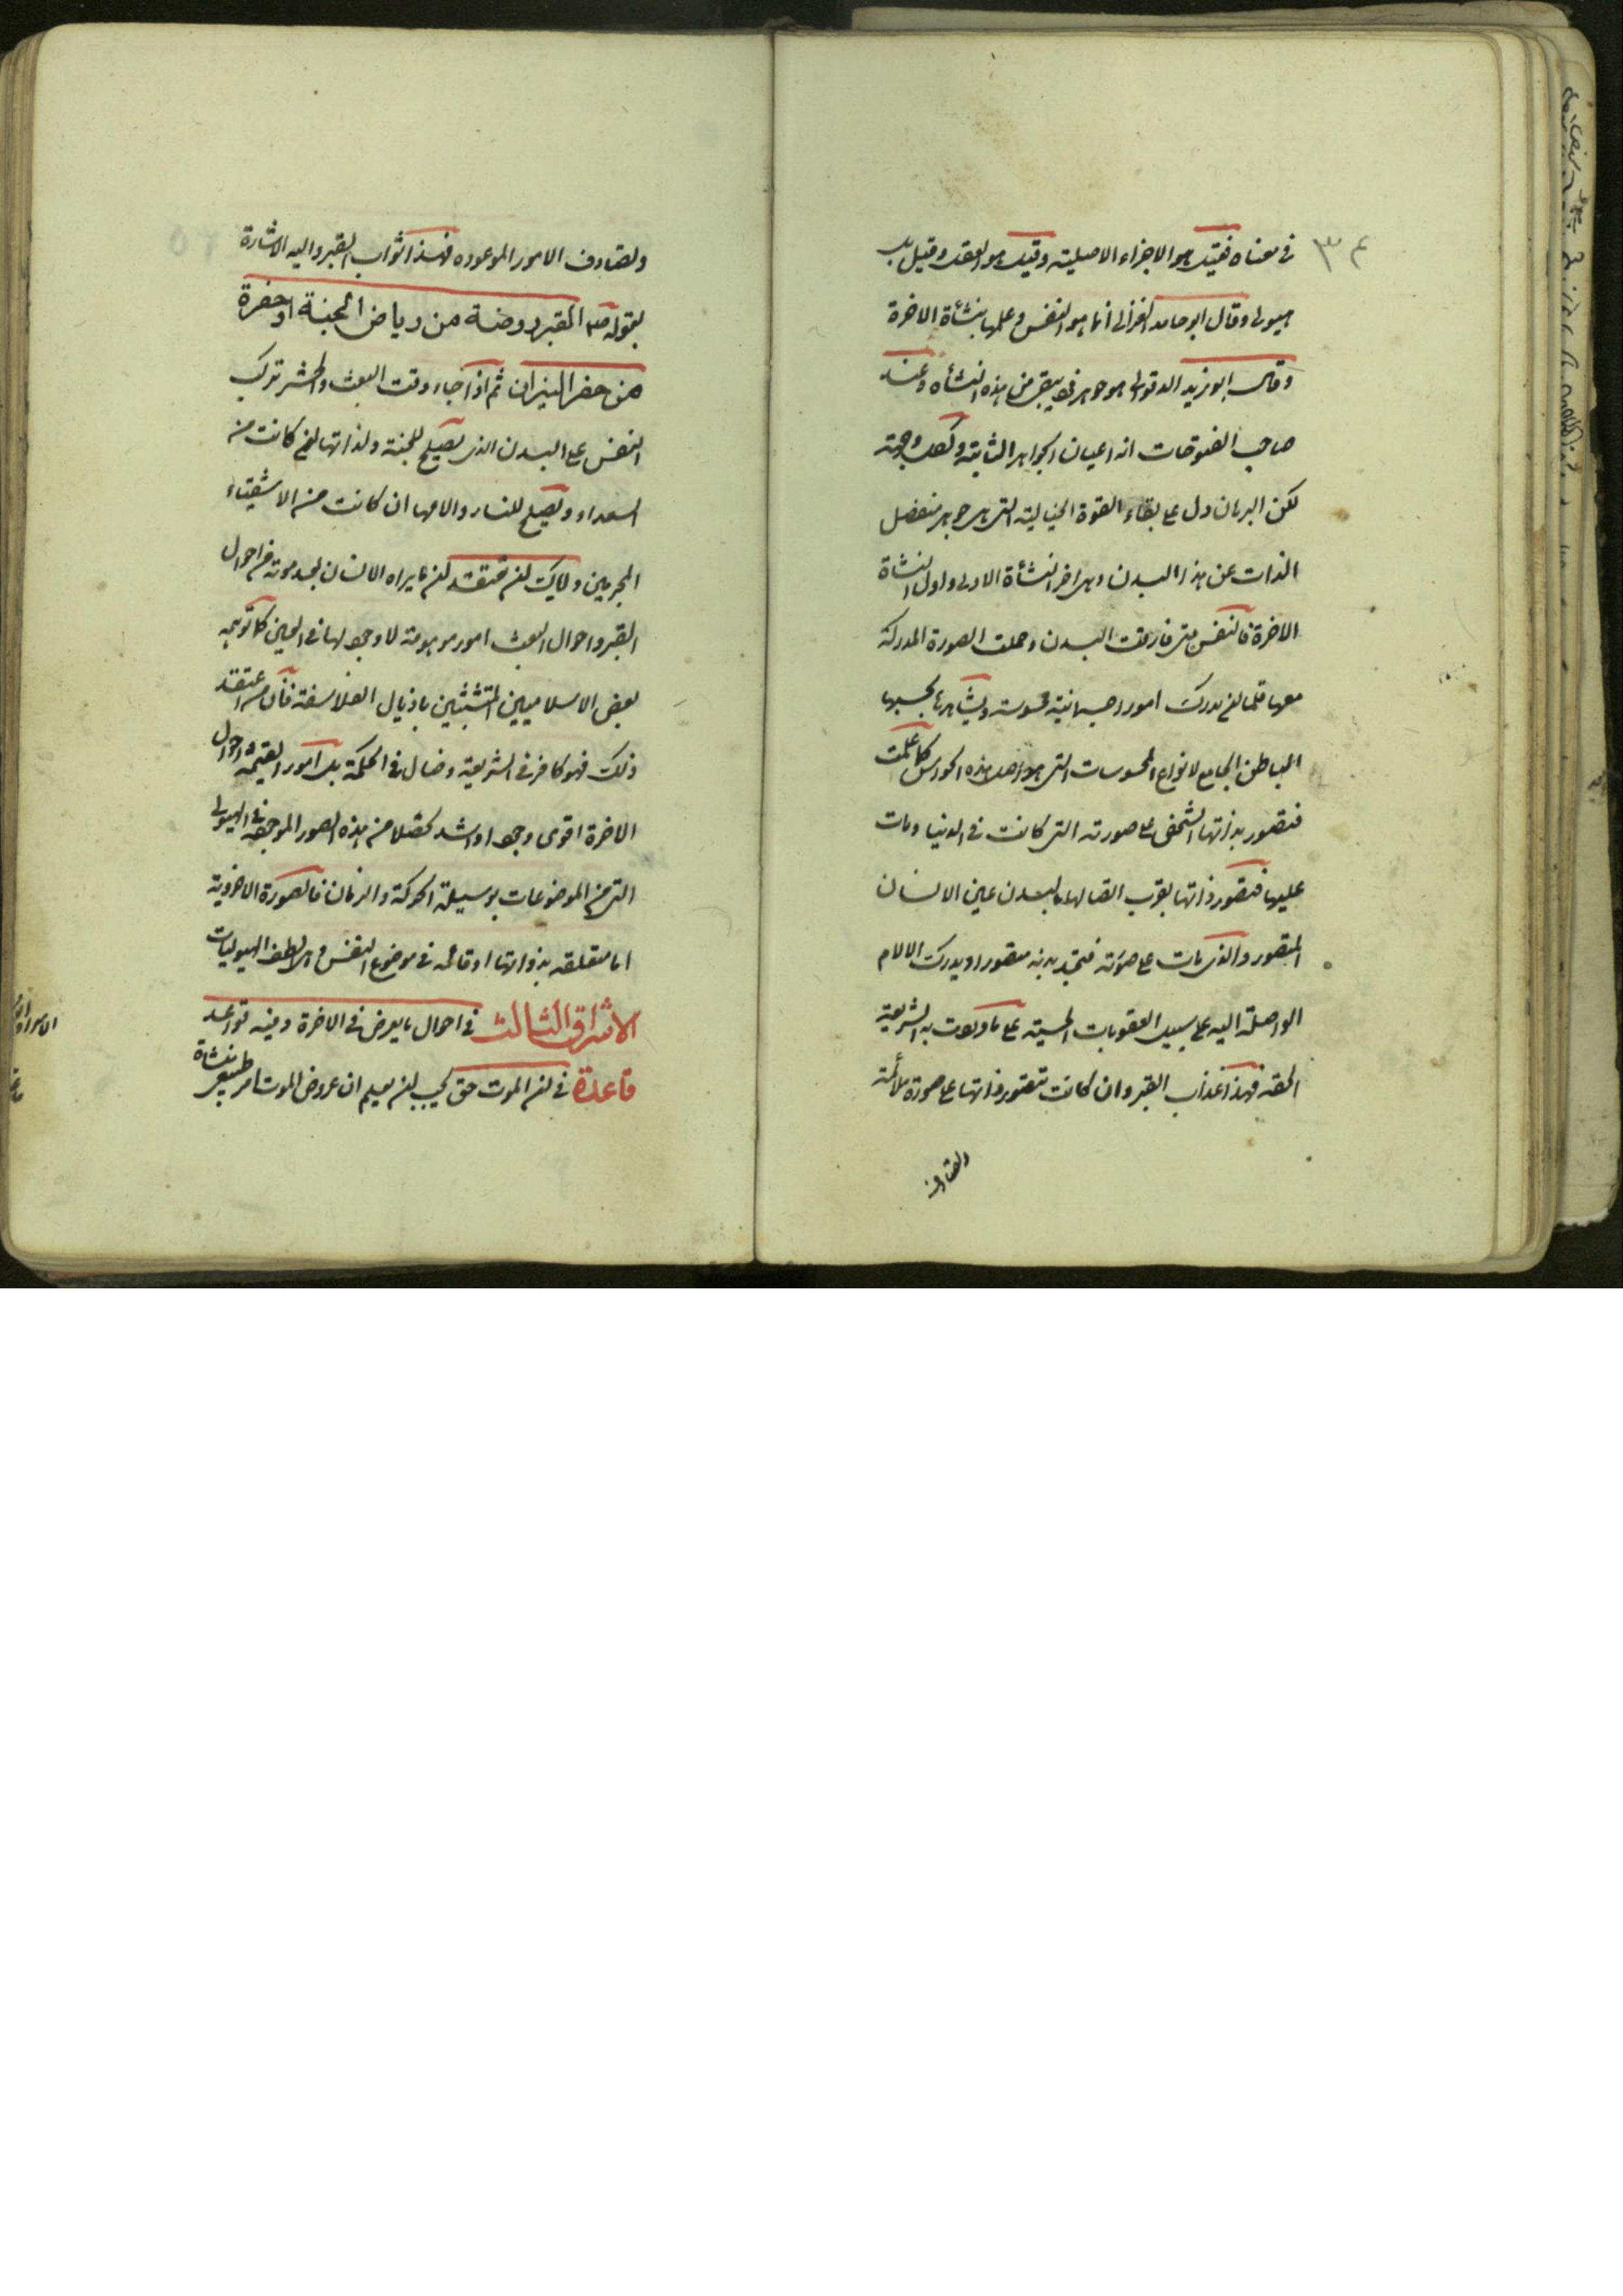 ٣٤
في معناه فقيل هو الاجزاء الاصلية وقيل هو العقل وقيل بل
هيولى وقال ابو حامد الغزالى انما هو النفس وعليها ينشأة الاخرة
وقال ابو يزيد الوقواقى هو جوهر فرد يبقى من هذه النشأه وعند
صاحب الفتوحات انه اعيان الجواهر الثابتة ولكل وجهة
لكن البرهان دل على بقاء القوة الخيالية التى هى جوهر منفصل
الذات عن هذا البدن وهى اخر النشأة الاولى واول النشاة
الاخرة فالنفس متى فارقت البدن وحملت الصورة المدركة
معها فلها ان تدرك امورا جسمانية محسوسة ويشاهدها بحسها
الباطن الجامع لانواع المحسوسات التى هو اصل هذه الحواس كما علمت
فتصور بذاتها الشخص على صورته التى كانت فى الدنيا ومات
عليها فتصور ذاتها بقرب اتصالها بالبدن عين الانسان
المقبور والذى مات على صورته فتجد بدنه مقبورا ويدرك الالام
الواصلة اليه على سبيل العقوبات الحسية على ما وردت به الشريعة
الحقه فهذا عذاب القبر وان كانت تتصور ذاتها على صورة ملائمة
وتصادف
وتصادف الامور الموعوده فهذا ثواب القبر واليه الاشارة
بقوله صم القبر روضة من رياض الجنة او حفرة
من حفر النيران ثم اذا جاء وقت البعث والحشر تركب
النفس على البدن الذى يصلح للجنة ولذاتها ان كانت من
السعداء ويصلح للنار والامها ان كانت من الاشقياء
المجرمين واياك ان تعتقد ان ما يراه الانسان بعد موته من احوال
القبر واحوال البعث امور موهومة لا وجود لها فى العين كما توهمه
بعض الاسلاميين المتشبثين باذيال الفلاسفة فان من اعتقد
ذلك فهو كافر فى الشريعة وضال فى الحكمة بل امور القيمة واحوال
الاخرة اقوى وجودا واشد تحصلا من هذه الصور الموجوده فى الهيولى
التى هى الموضوعات بوسيلة الحركة والزمان فالصورة الاخروية
اما متعلقه بذواتها او قائمه فى موضوع النفس وهى الطف الهيوليات
الاشراق الثالث فى احوال ما يعرض فى الاخرة وفيه قواعد
قاعدة فى ان الموت حق يجب ان يعلم ان عروض الموت امر طبيعى منشاة